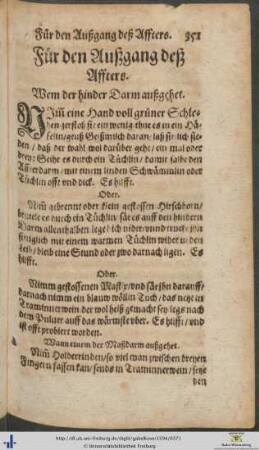 Für den Außgang deß Affters. 351
Für den Außgang deß
Affters.
Wem der hinder Darm außgehet.
NIm̃ eine Hand voll grüner Schle-
hen zerstoß sie ein wenig thue es in ein Hä-
felin / geuß Geißmilch daran / laß sie
den / daß der wahl wol darüber gehe / ein mal oder
drey: Seihe es durch ein Tüchlin / damit salbe den
Affterdarm / mit einem linden Schwämmlin oder
Tüchlin offt und dick. Es hilfft.
Oder.
Nim̃ gebrennt oder klein gestossen Hirschhorn /
beutele es durch ein Tüchlin säe es auff den hindern
Darm allenthalben lege dich nider / und truck jhn
senfftiglich mit einem warmen Tüchlin wider in den
Leib / bleib eine Stund oder zwo darnach ligen. Es
hilfft.
Oder.
Nimm gestossenen Mastix / und säe jhn darauff /
darnach nimm ein blauw wöllin Tuch / das netz in
Traminnerwein der wol heiß gemacht sey legs nach
dem Pulver auff das wärmest uber. Es hilfft / und
ist offt probiert worden.
Wann einem der Maßdarm außgehet.
Nim̃ Holderrinden / so viel man zwischen dreyen
Fingern fassen kan / seuds in Traminnerwein / setze
den
http://dl.ub.uni-freiburg.de/diglit/gabelkover1594/0371
© Universitätsbibliothek Freiburg